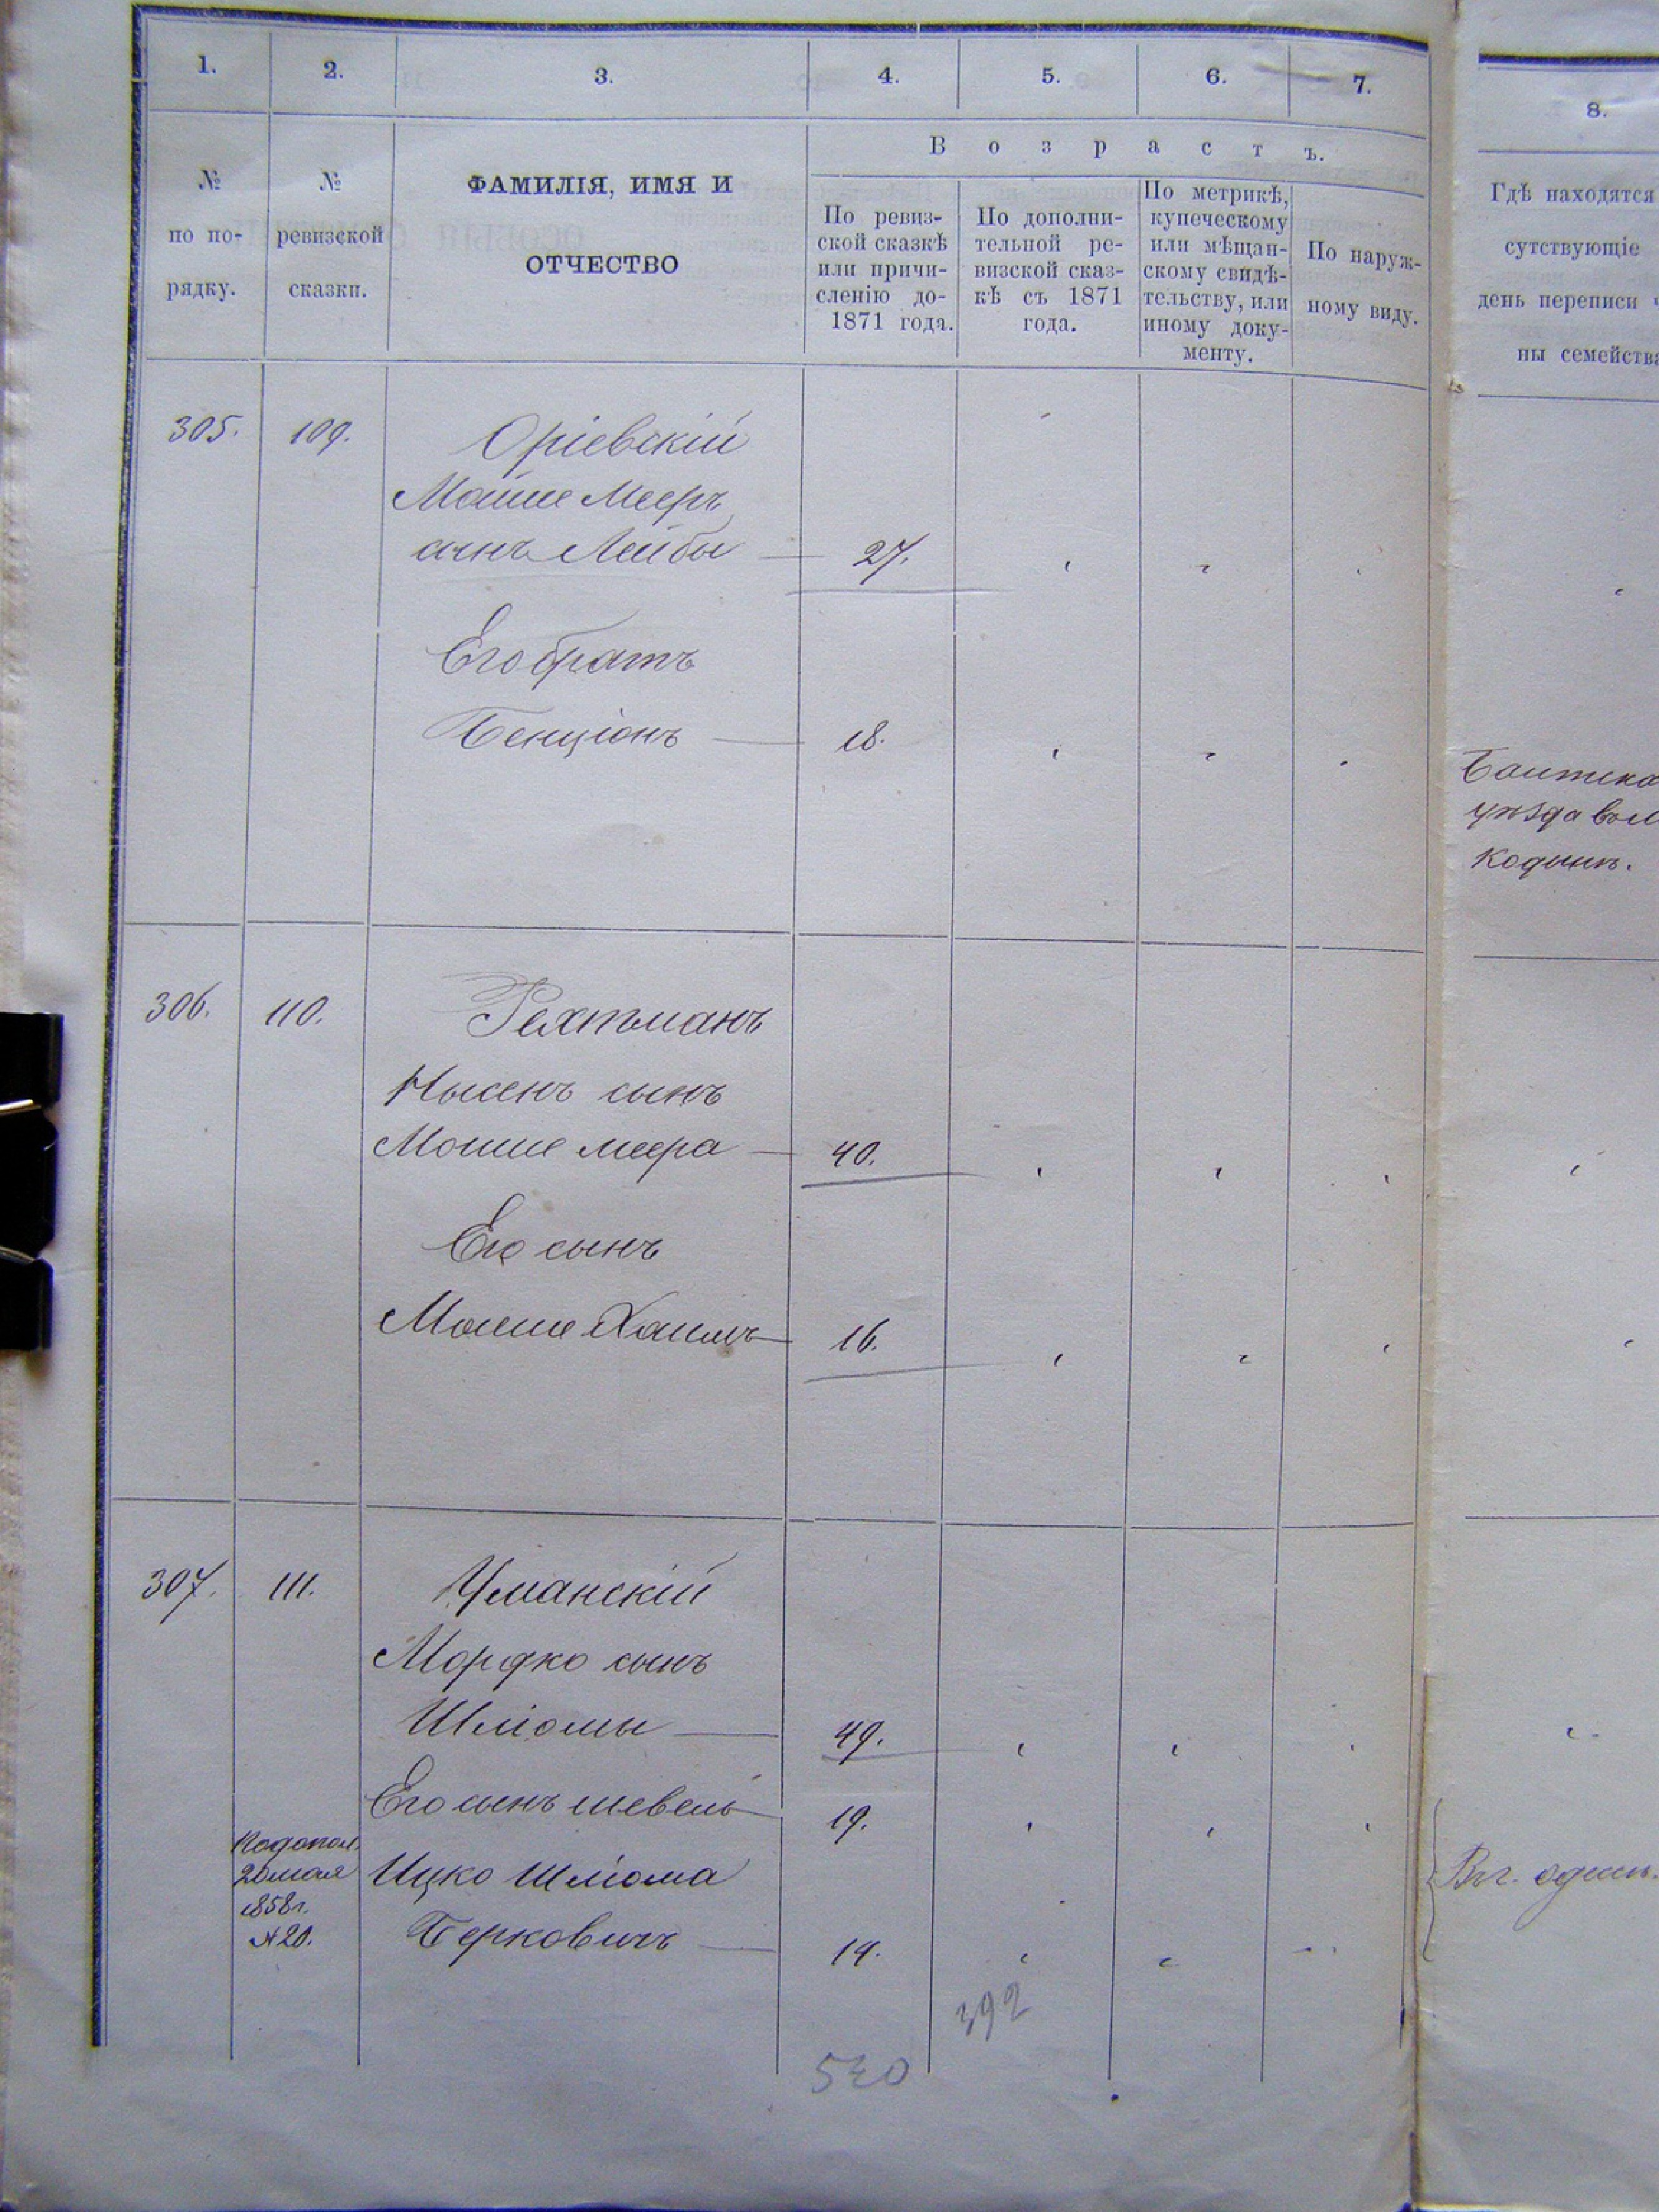 1. 2. 3. 4. 5. 6. 7.
8.
В о з р а с т ъ.
№
по по-
рядку.
№
ревизской
сказки.
ФАМИЛІЯ, ИМЯ И
ОТЧЕСТВО
По ревиз-
ской сказкѣ
или причи-
сленію до-
1871 года.
По дополни-
тельной ре-
визской сказ-
кѣ съ 1871
года.
По метрикѣ,
купеческому
или мѣщан-
скому свидѣ-
тельству, или
иному доку-
менту.
По наруж-
ному виду.
Гдѣ находятся
сутствующіе
день переписи
ны семейства
305. 109. Оріевскій
Мошие Мееръ
сынъ Лейбы 27.
Его братъ
Бенціонъ 18.
уѣзда
306. 110. Рехтманъ
Нысенъ сынъ
Мошие меера 40.
Его сынъ
Мошие Хаимъ 16.
307. 111. Уманскій
Мордко сынъ
Шліомы 49.
Его сынъ шевель 19.
По допол.
20 мая
1858 г.
№ 20.
Ицко Шліома
Берковичъ 14.
Въ г. одессѣ.
392
520